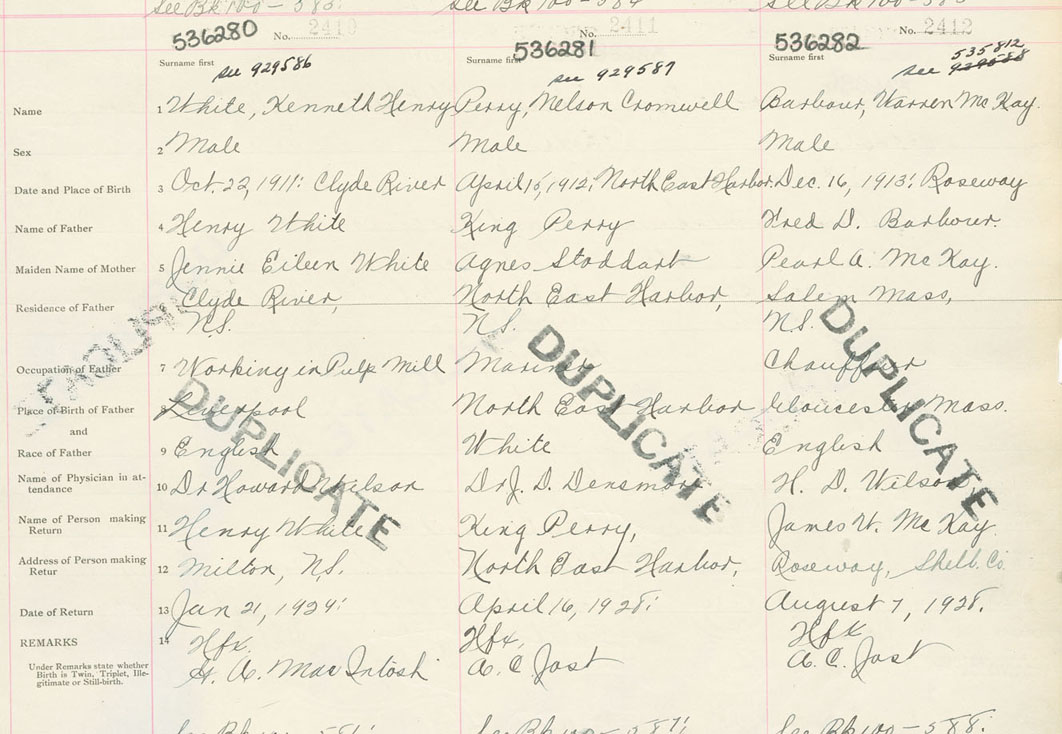 See Bk 100 - 583. See Bk 100 - 584 See Bk 100 - 585
536280 No. 2410 536281 No. 2411 536282 No. 2412
Surname first see 929586 Surname first see 929587 Surname first see 929588 535812
Name 1 White, Kenneth Henry Perry, Nelson Cromwell Barbour, Warren Mc Kay.
Sex 2 Male Male Male
Date and Place of Birth 3 Oct. 22, 1911: Clyde River April 15, 1912; North East Harbor Dec. 16, 1913; Roseway
Name of Father 4 Henry White King Perry Fred D. Barbour.
Maiden Name of Mother 5 Jennie Eileen White Agnes Stoddart Pearl A. Mc Kay.
Residence of Father Clyde River, North East Harbor, Salem Mass,
N.S. N.S. N.S.
Occupation of Father 7 Working in Pulp Mill Mariner Chauffeur
Place of Birth of Father 8 Liverpool North East Harbor Gloucester Mass.
and
Race of Father 9 English White English
Name of Physician in at-
tendance 10 Dr Howard Wilson Dr J. D. Densmore H. D. Wilson
Name of Person making
Return 11 Henry White King Perry, James W. Mc Kay.
Address of Person making
Retur 12 Milton, N.S. North East Harbor, Roseway, Shelb. Co.
Date of Return 13 Jan 21, 1924: April 16, 1928; August 7, 1928.
REMARKS 14 Hfx. Hfx, Hfx
H. A. MacIntosh A. C. Jost A. C. Jost
Under Remarks state whether
Birth is Twin, Triplet, Ille-
gitimate or Still-birth.
DUPLICATE
DUPLICATE
DUPLICATE
DUPLICATE
See Bk 100 - See Bk 100 - 587; See Bk 100 - 588.